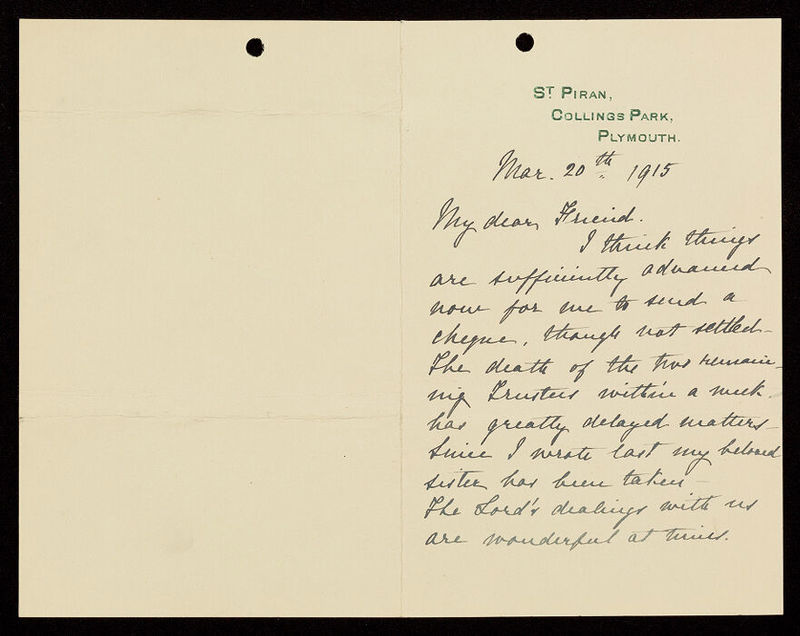 ST PIRAN,
COLLINGS PARK,
PLYMOUTH.
Mar. 20th 1915
My dear Friend.
I think things
are sufficiently advanced
now for me to send a
cheque, though not settled-
The death of the two remain-
ing Trustees within a week
has greatly delayed matters-
Since I wrote last my beloved
sister has been taken-
The Lord's dealings with us
are wonderful at times.